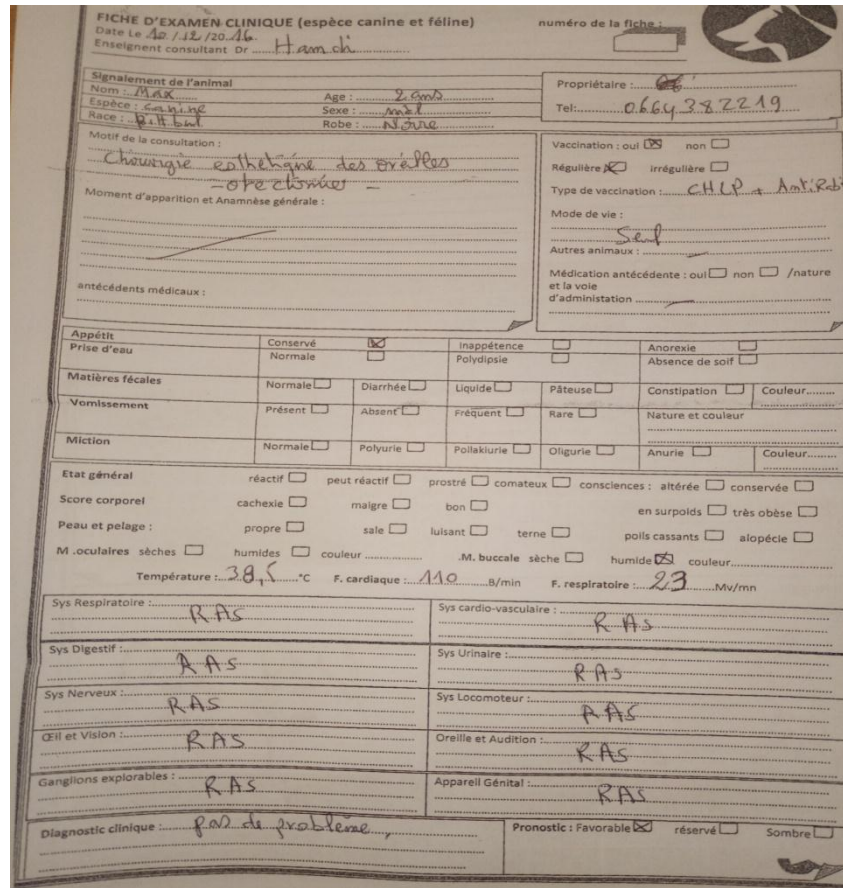 FICHE D'EXAMEN CLINIQUE (espèce canine et féline)
numéro de la fiche :
Date Le 10/12/2016
Enseignent consultant Dr Hamdi
Signalement de l'animal
Nom : Max Age : 2 ans
Espèce : canine Sexe : mâl
Race : Pittbul Robe : Noire
Propriétaire :
Tel: 0664382219
Motif de la consultation :
Chourigie esthetigne des oreilles
- otectomie -
Moment d'apparition et Anamnèse générale :
antécédents médicaux :
Vaccination : oui ☒ non ☐
Régulière ☒ irrégulière ☐
Type de vaccination : CHLP + AntiRabi
Mode de vie :
Seul
Autres animaux :
Médication antécédente : oui ☐ non ☐ /nature
et la voie
d'administation
Appétit Conservé ☒ Inappétence ☐ Anorexie ☐
Prise d'eau Normale ☐ Polydipsie ☐ Absence de soif ☐
Matières fécales Normale ☐ Diarrhée ☐ Liquide ☐ Pâteuse ☐ Constipation ☐ Couleur
Vomissement Présent ☐ Absent ☐ Fréquent ☐ Rare ☐ Nature et couleur
Miction Normale ☐ Polyurie ☐ Pollakiurie ☐ Oligurie ☐ Anurie ☐ Couleur
Etat général réactif ☐ peut réactif ☐ prostré ☐ comateux ☐ consciences : altérée ☐ conservée ☐
Score corporel cachexie ☐ maigre ☐ bon ☐ en surpoids ☐ très obèse ☐
Peau et pelage : propre ☐ sale ☐ luisant ☐ terne ☐ poils cassants ☐ alopécie ☐
M .oculaires sèches ☐ humides ☐ couleur .M. buccale sèche ☐ humide ☒ couleur
Température : 38,5 °C F. cardiaque : 110 B/min F. respiratoire : 23 Mv/mn
Sys Respiratoire : RAS
Sys cardio-vasculaire : RAS
Sys Digestif : RAS
Sys Urinaire : RAS
Sys Nerveux : RAS
Sys Locomoteur : RAS
Œil et Vision : RAS
Oreille et Audition : RAS
Ganglions explorables : RAS
Appareil Génital : RAS
Diagnostic clinique : pas de probleme,
Pronostic : Favorable ☒ réservé ☐ Sombre ☐